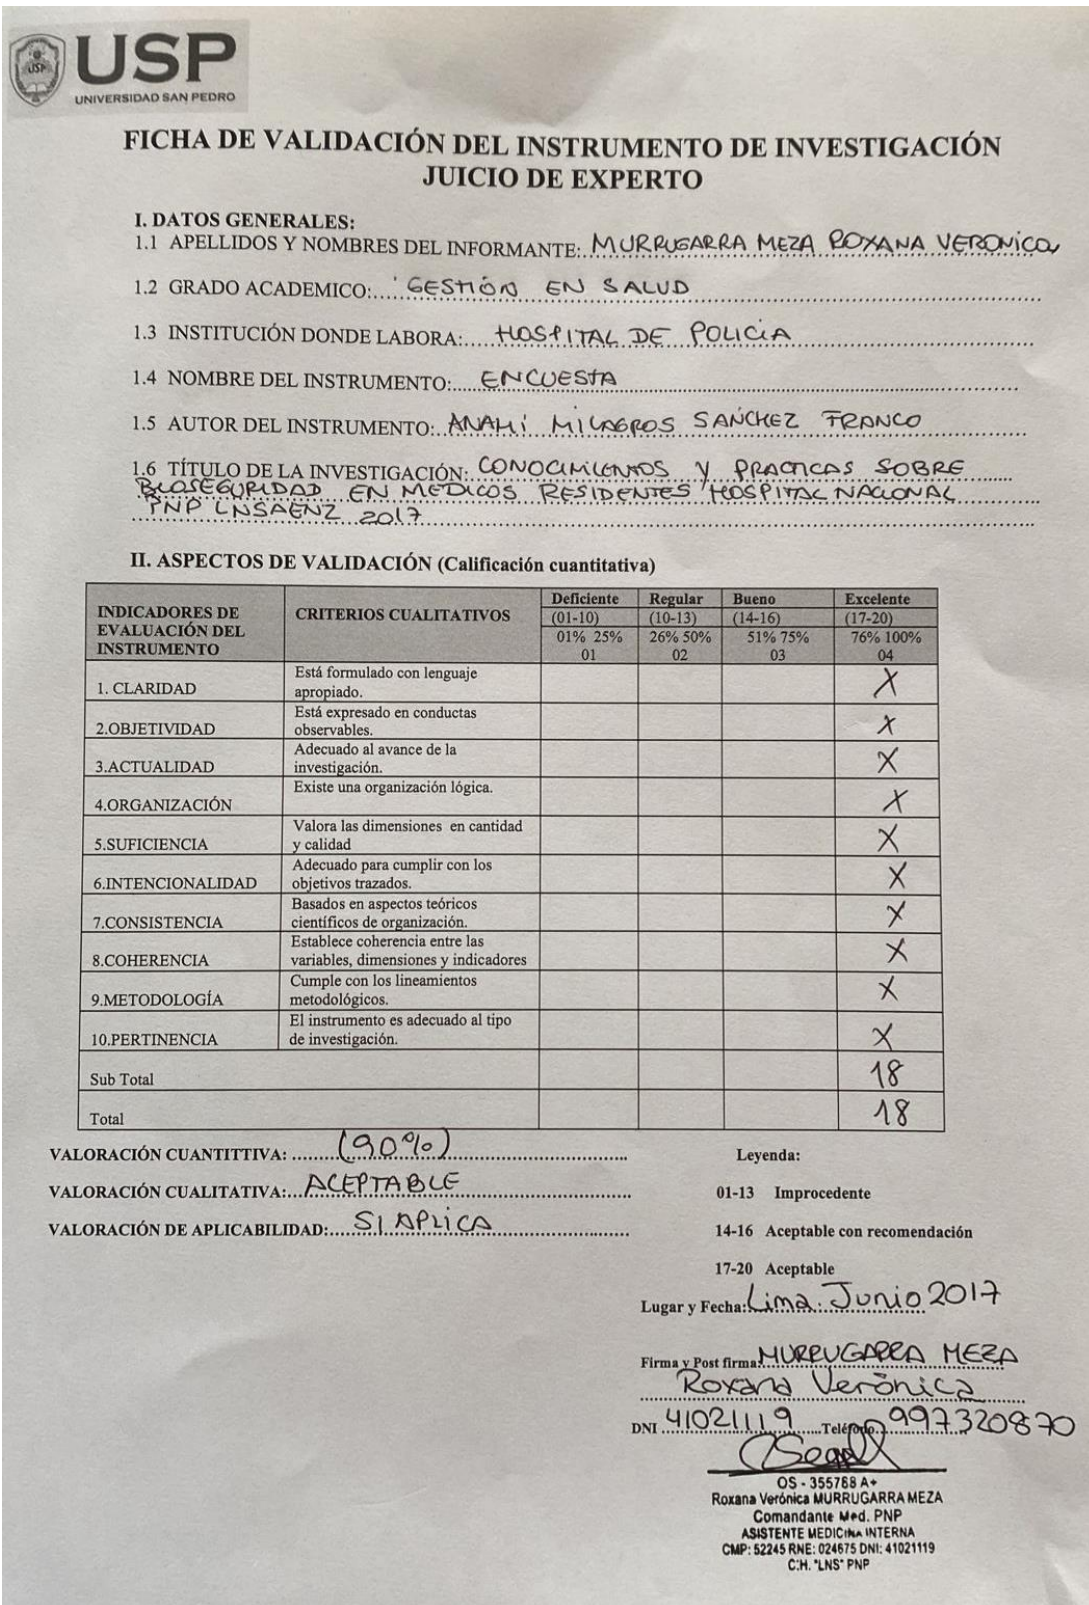 USP
USP
UNIVERSIDAD SAN PEDRO
FICHA DE VALIDACIÓN DEL INSTRUMENTO DE INVESTIGACIÓN
JUICIO DE EXPERTO
I. DATOS GENERALES:
1.1 APELLIDOS Y NOMBRES DEL INFORMANTE: MURRUGARRA MEZA ROXANA VERONICA
1.2 GRADO ACADEMICO: GESTIÓN EN SALUD
1.3 INSTITUCIÓN DONDE LABORA: HOSPITAL DE POLICIA
1.4 NOMBRE DEL INSTRUMENTO: ENCUESTA
1.5 AUTOR DEL INSTRUMENTO: ANAHÍ MILAGROS SANCHEZ FRANCO
1.6 TÍTULO DE LA INVESTIGACIÓN: CONOCIMIENTOS Y PRACTICAS SOBRE
BIOSEGURIDAD EN MEDICOS RESIDENTES HOSPITAL NACIONAL
PNP LNSAENZ 2017
II. ASPECTOS DE VALIDACIÓN (Calificación cuantitativa)
INDICADORES DE EVALUACIÓN DEL INSTRUMENTO CRITERIOS CUALITATIVOS Deficiente Regular Bueno Excelente
(01-10) (10-13) (14-16) (17-20)
01% 25% 26% 50% 51% 75% 76% 100%
01 02 03 04
1. CLARIDAD Está formulado con lenguaje apropiado. X
2.OBJETIVIDAD Está expresado en conductas observables. X
3.ACTUALIDAD Adecuado al avance de la investigación. X
4.ORGANIZACIÓN Existe una organización lógica. X
5.SUFICIENCIA Valora las dimensiones en cantidad y calidad X
6.INTENCIONALIDAD Adecuado para cumplir con los objetivos trazados. X
7.CONSISTENCIA Basados en aspectos teóricos científicos de organización. X
8.COHERENCIA Establece coherencia entre las variables, dimensiones y indicadores X
9.METODOLOGÍA Cumple con los lineamientos metodológicos. X
10.PERTINENCIA El instrumento es adecuado al tipo de investigación. X
Sub Total 18
Total 18
VALORACIÓN CUANTITTIVA: (90%)
VALORACIÓN CUALITATIVA: ACEPTABLE
VALORACIÓN DE APLICABILIDAD: SI APLICA
Leyenda:
01-13 Improcedente
14-16 Aceptable con recomendación
17-20 Aceptable
Lugar y Fecha: Lima. Junio 2017
Firma y Post firma: MURRUGARRA MEZA
Roxana Verónica
DNI 41021119 Teléfono 997320870
OS - 355788 A+
Roxana Verónica MURRUGARRA MEZA
Comandante Med. PNP
ASISTENTE MEDICINA INTERNA
CMP: 52245 RNE: 024675 DNI: 41021119
C.H. "LNS" PNP